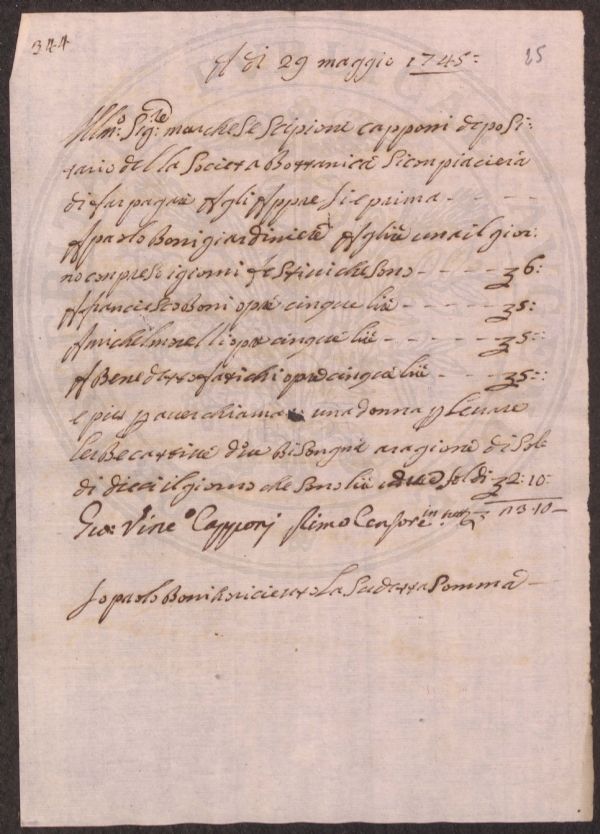 344
25
A di 29 maggio 1745:
Illmo: Sig:re marchese Scipione capponi deposi:
tario della Società Bottanica Si conpiacierà
di far pagare Agli Appre Sie prima - - - -
A paolo Boni giardiniere A lire una il gior:
no conpreso i giorni festivi che sono - - - - - 36:
A franciesco Boni opre cinque lire - - - - - 35:
A michel morelli opre cinque lire - - - - - 35:
A Benedetto farichi opre cinque lire - - - 35::
e piu p aver chiamato una donna p levare
di dieci il giorno che sono lire due soldi 32:10:
Gio: Vinc:o Capponj primo Censore 13-10-
Io paolo Boni ho ricieuto La Sudetta Somma -